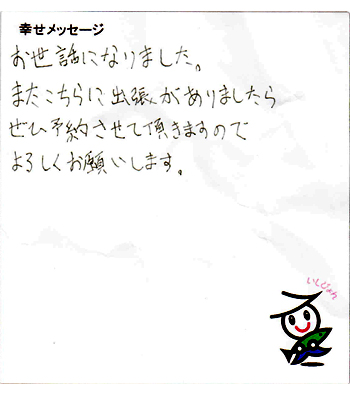 幸せメッセージ
お世話になりました。
またこちらに出張がありましたら
ぜひ予約させて頂きますので
よろしくお願いします。